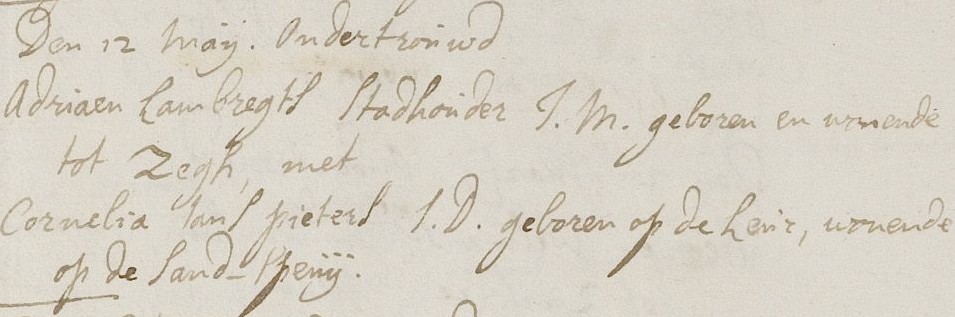 Den 12 Maÿ. Ondertrouwd
Adriaen Lambregts Stadhouder J. M. geboren en wonende
tot Zegh, met
Cornelia Jans pieters J. D. geboren op de Leur, wonende
op de Sand-